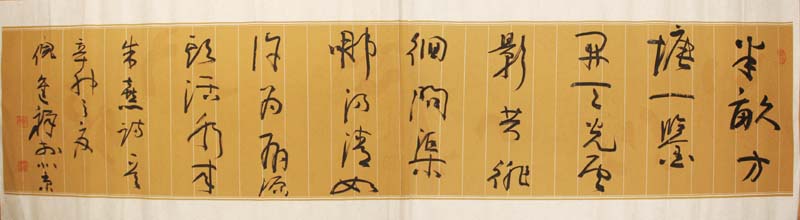 半畝方
塘一鑒
開天光雲
影共徘
徊問渠
哪得清如
許為有源
頭活水來
朱熹詩意
辛卯之夏
倪